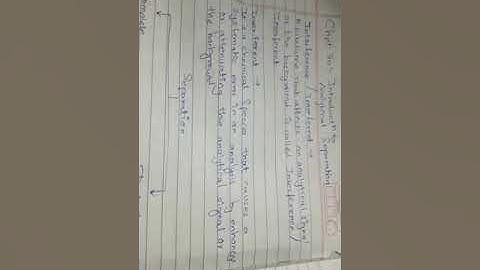 Chpt 30:- Introduction to
Analytical Separation
Interference / Interferent →
that affects an analytical signal
or the background is called Interference /
Interferent
Interferent →
It is a chemical Species that causes a
systematic error in an analysis by enhancing
or attenuating the analytical signal or
the background
Separation
Complete